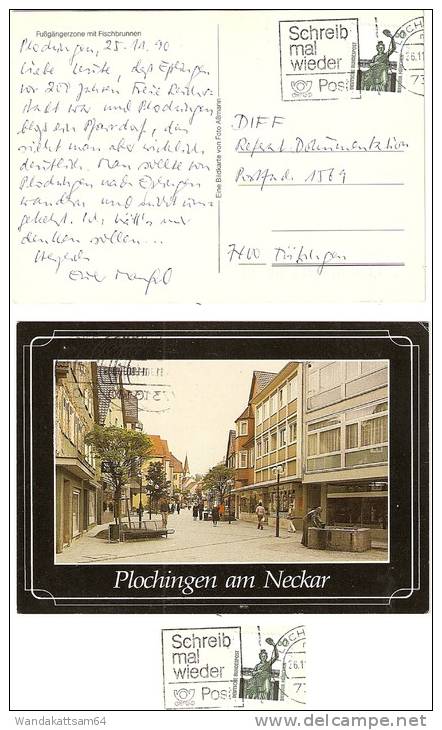 Fußgängerzone mit Fischbrunnen
Plochingen, 25.11.90
Liebe Leute, daß Esslingen
vor 200 Jahren Freie Reichs-
stadt war und Plochingen
bloß ein Pfarrdorf, das
sieht man aber wirklich
deutlich. Man sollte von
Plochingen nach Esslingen
wandern und nicht umge-
kehrt. Ich hätt's mir
denken sollen...
Herzlich
Eine Bildkarte von Foto Altmann
Schreib
mal
wieder
Post
DIFF
Referat Dokumentation
Postfach 1569
7400 Tübingen
Plochingen am Neckar
Schreib
mal
wieder
Post
Wandakattsam64